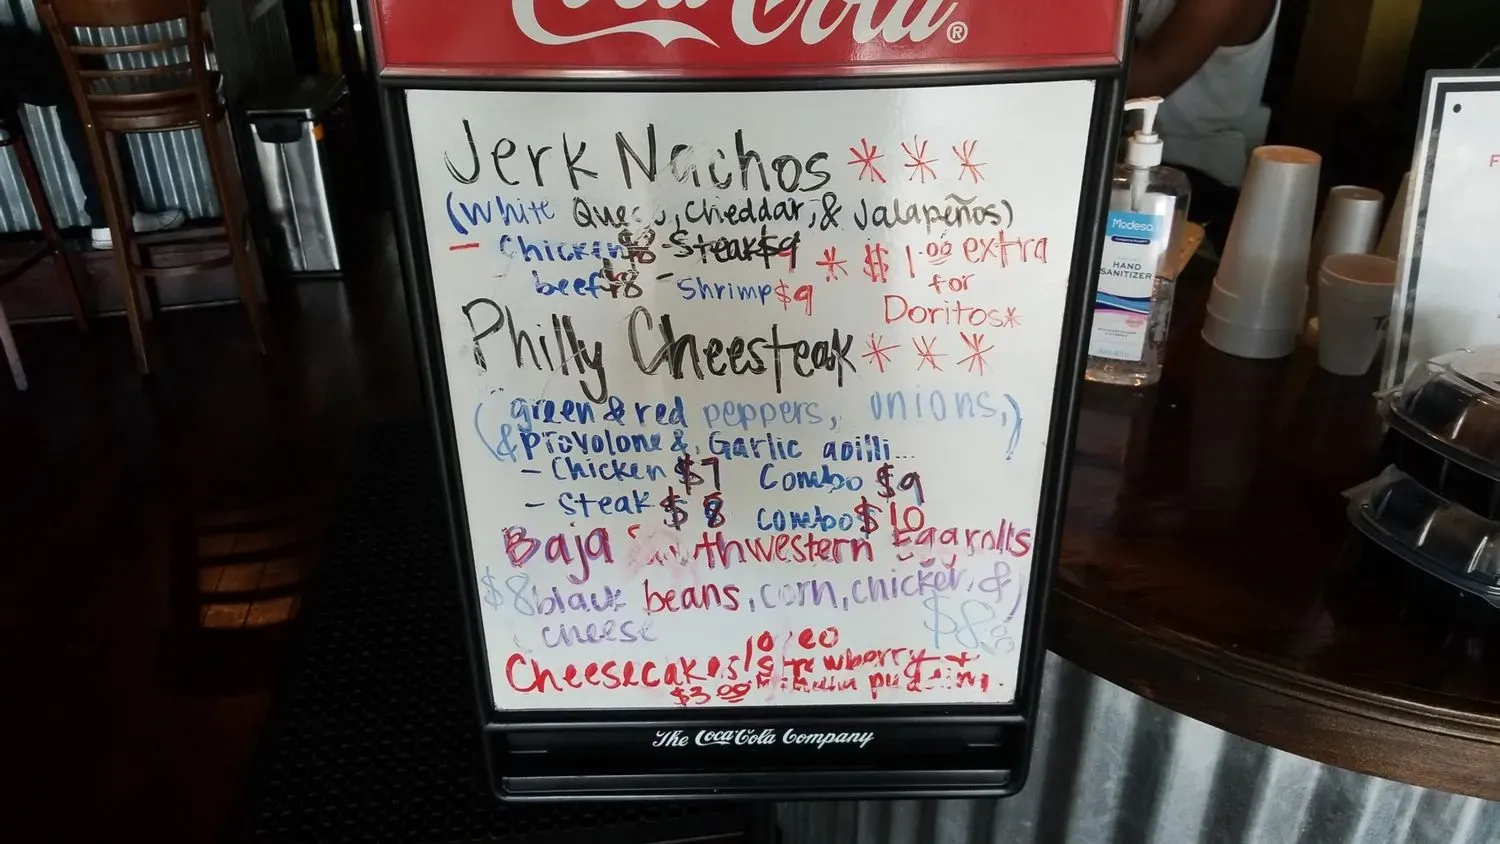 Coca-Cola®
Jerk Nachos ***
(White Queso, cheddar, & Jalapeños)
- Chicken $8 - Steak $9 * $1.00 extra
beef $8 - Shrimp $9 for
Doritos*
Philly Cheesteak ***
(green & red peppers, onions,)
& provolone & Garlic aoilli...
- Chicken $7 Combo $9
- Steak $8 combo $10
Baja Southwestern Eggrolls
$8 black beans, corn, chicken, &)
cheese $8.00
Cheesecakes Strawberry +
$3.00 pudding.
The Coca-Cola Company
Modesa
HAND
SANITIZER